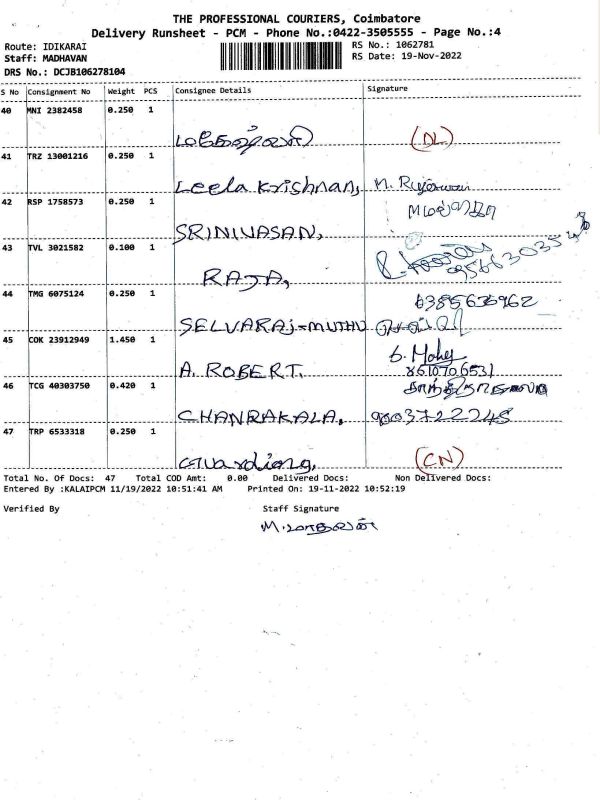 THE PROFESSIONAL COURIERS, Coimbatore
Delivery Runsheet - PCM - Phone No.:0422-3505555 - Page No.:4
Route: IDIKARAI RS No.: 1062781
Staff: MADHAVAN RS Date: 19-Nov-2022
DRS No.: DCJB106278104
S No Consignment No Weight PCS Consignee Details Signature
40 MNI 2382458 0.250 1
(DL)
41 TRZ 13001216 0.250 1
Leela Krishnan,
42 RSP 1758573 0.250 1
SRINIVASAN,
43 TVL 3021582 0.100 1
RAJA,
44 TMG 6075124 0.250 1 6385636962
SELVARAJ-MUTHU
45 COK 23912949 1.450 1
A. ROBERT. 8610706531
46 TCG 40303750 0.420 1
CHANRAKALA, 9003722245
47 TRP 6533318 0.250 1
(CN)
Total No. Of Docs: 47 Total COD Amt: 0.00 Delivered Docs: Non Delivered Docs:
Entered By :KALAIPCM 11/19/2022 10:51:41 AM Printed On: 19-11-2022 10:52:19
Verified By Staff Signature
M.மாதவன்